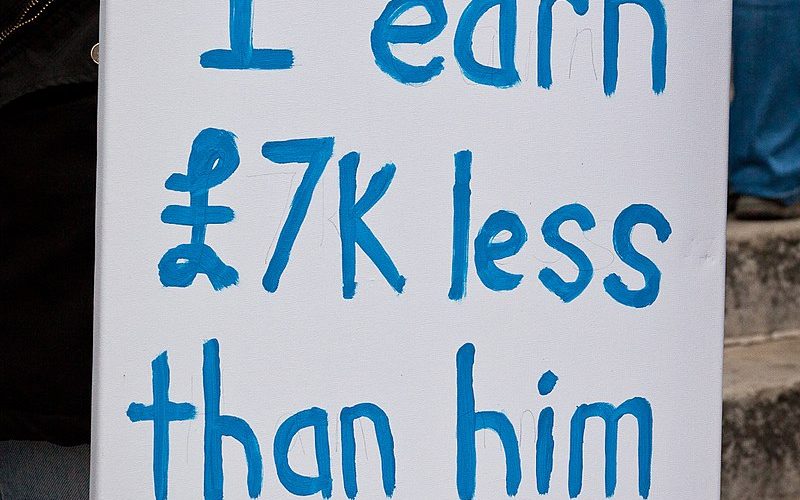 I earn
£7K less
than him